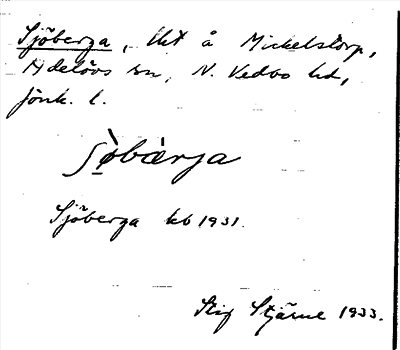 Sjöberga, tkt å Mickelstorp,
Adelövs sn, N. Vedbo hd,
Jönk. l.
ʃø̀bæ̀rja
Sjöberga kb 1931.
Stig Stjärne 1933.